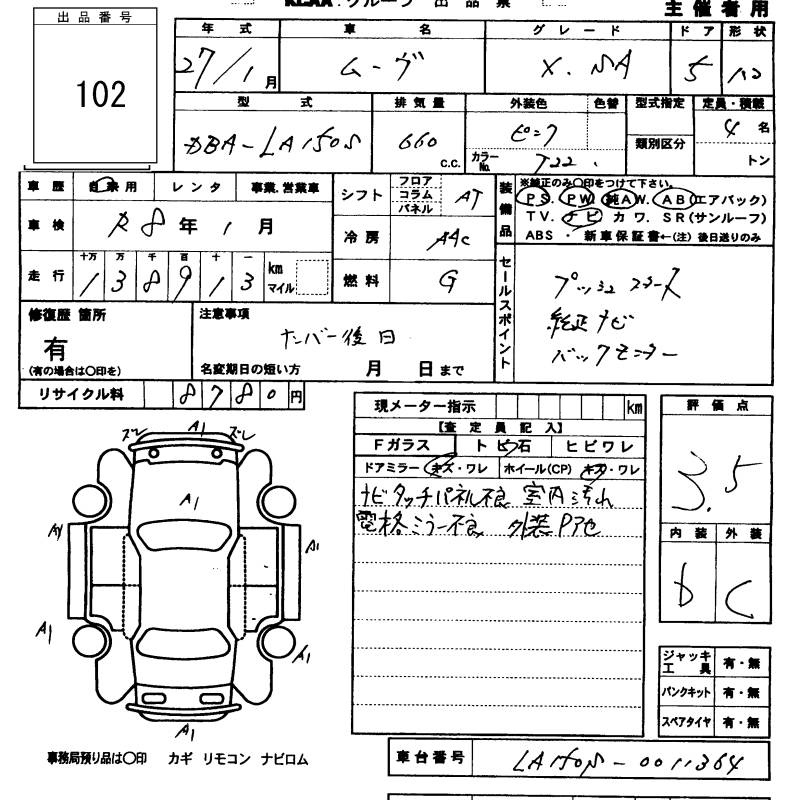 出品番号
KCAA.グループ 出品票
主催者用
102
年式 車名 グレード ドア 形状
27/1月 ムーヴ X.SA 5 HB
型式 排気量 外装色 色替 型式指定 定員・積載
DBA-LA150S 660 c.c. ピンク 類別区分 4名
カラーNo. T22 トン
車歴 自家用 レンタ 事業.営業車
シフト フロア コラム パネル AT
装備品
※純正のみ〇印をつけて下さい。
PS. PW. 純AW. AB(エアバック)
TV. ナビ カワ. SR(サンルーフ)
ABS・新車保証書←(注)後日送りのみ
車検 R8年1月
冷房 AAC
走行 十万 万 千 百 十 一
138913 km マイル
燃料 G
セールスポイント
プッシュスタート
純正ナビ
バックモニター
修復歴 箇所
有
(有の場合は〇印を)
注意事項
ナンバー後日
名変期日の短い方 月 日まで
リサイクル料 8780円
現メーター指示 km
【査定員記入】
Fガラス トビ石 ヒビワレ
ドアミラー キズ・ワレ ホイール(CP) キズ・ワレ
ナビタッチパネル不良 室内汚れ
電格ミラー不良 外装Pアセ
評価点
3.5
内装 外装
D C
ズレ A1 ズレ
A1
A1 A1
A1 A1
A1
ジャッキ工具 有・無
パンクキット 有・無
スペアタイヤ 有・無
事務局預り品は〇印 カギ リモコン ナビロム
車台番号 LA150S-0011364